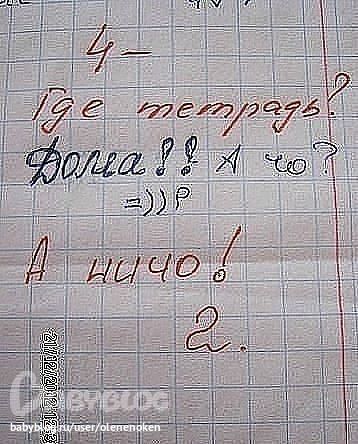 4-
Где тетрадь?
Дома?? А чо?
=))?
А ничо!
2.
BABYBLOG
babyblog.ru/user/olenenoken